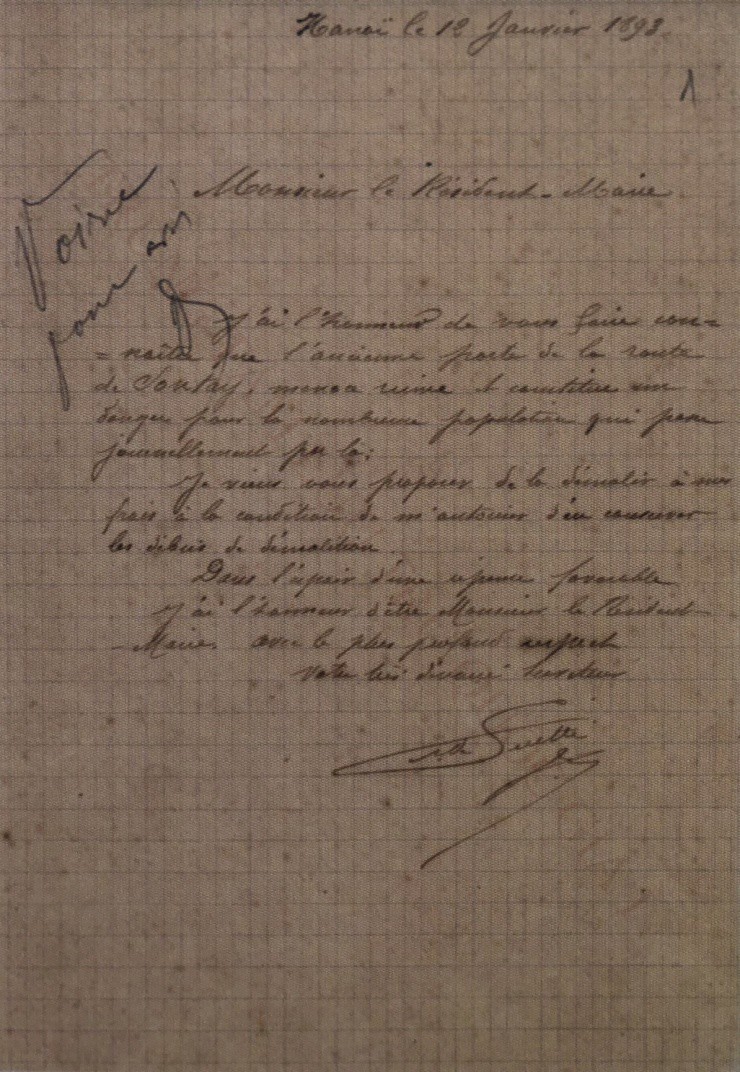 Hanoï le 12 Janvier 1893
1
Monsieur le Résident-Maire
Voirie
pour avis
J'ai l'honneur de vous faire con=
=naître que l'ancienne porte de la route
de Sontay, menace ruine et constitue un
danger pour la nombreuse population qui passe
journellement par là;
Je viens vous proposer de la démolir à mes
frais à la condition de m'autoriser d'en conserver
les débris de démolition.
Dans l'espoir d'une réponse favorable
J'ai l'honneur d'être Monsieur le Résident-
-Maire, avec le plus profond respect
votre très dévoué serviteur